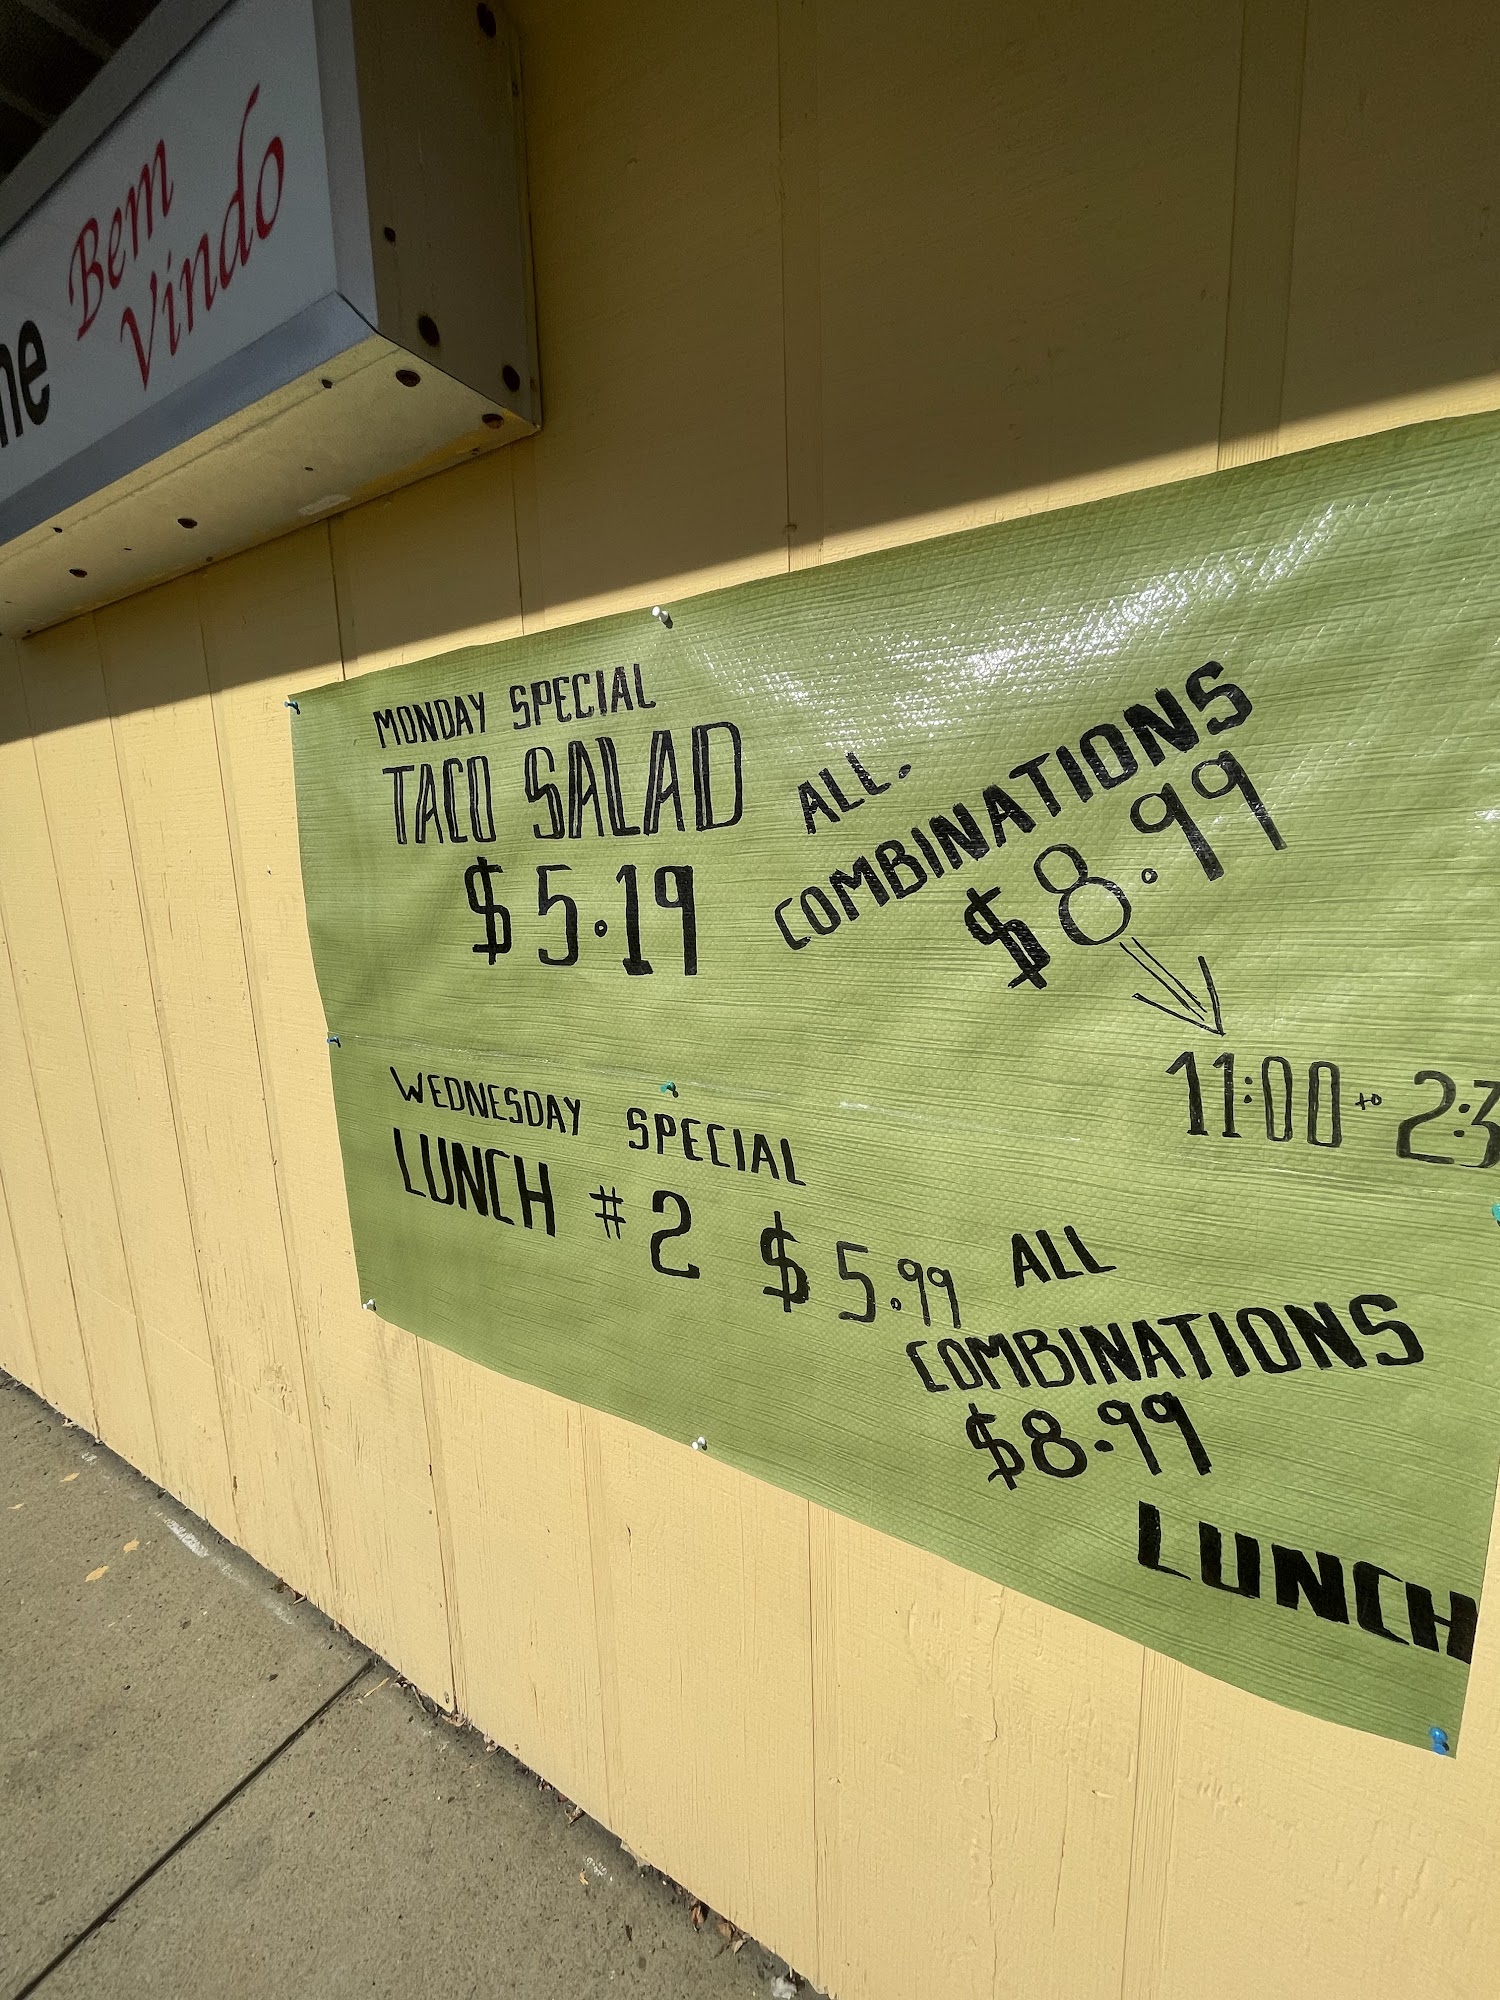 Bem
Vindo
MONDAY SPECIAL
TACO SALAD
$5.19
ALL.
COMBINATIONS
$8.99
11:00 to 2:3
WEDNESDAY SPECIAL
LUNCH #2 $5.99
ALL
COMBINATIONS
$8.99
LUNCH